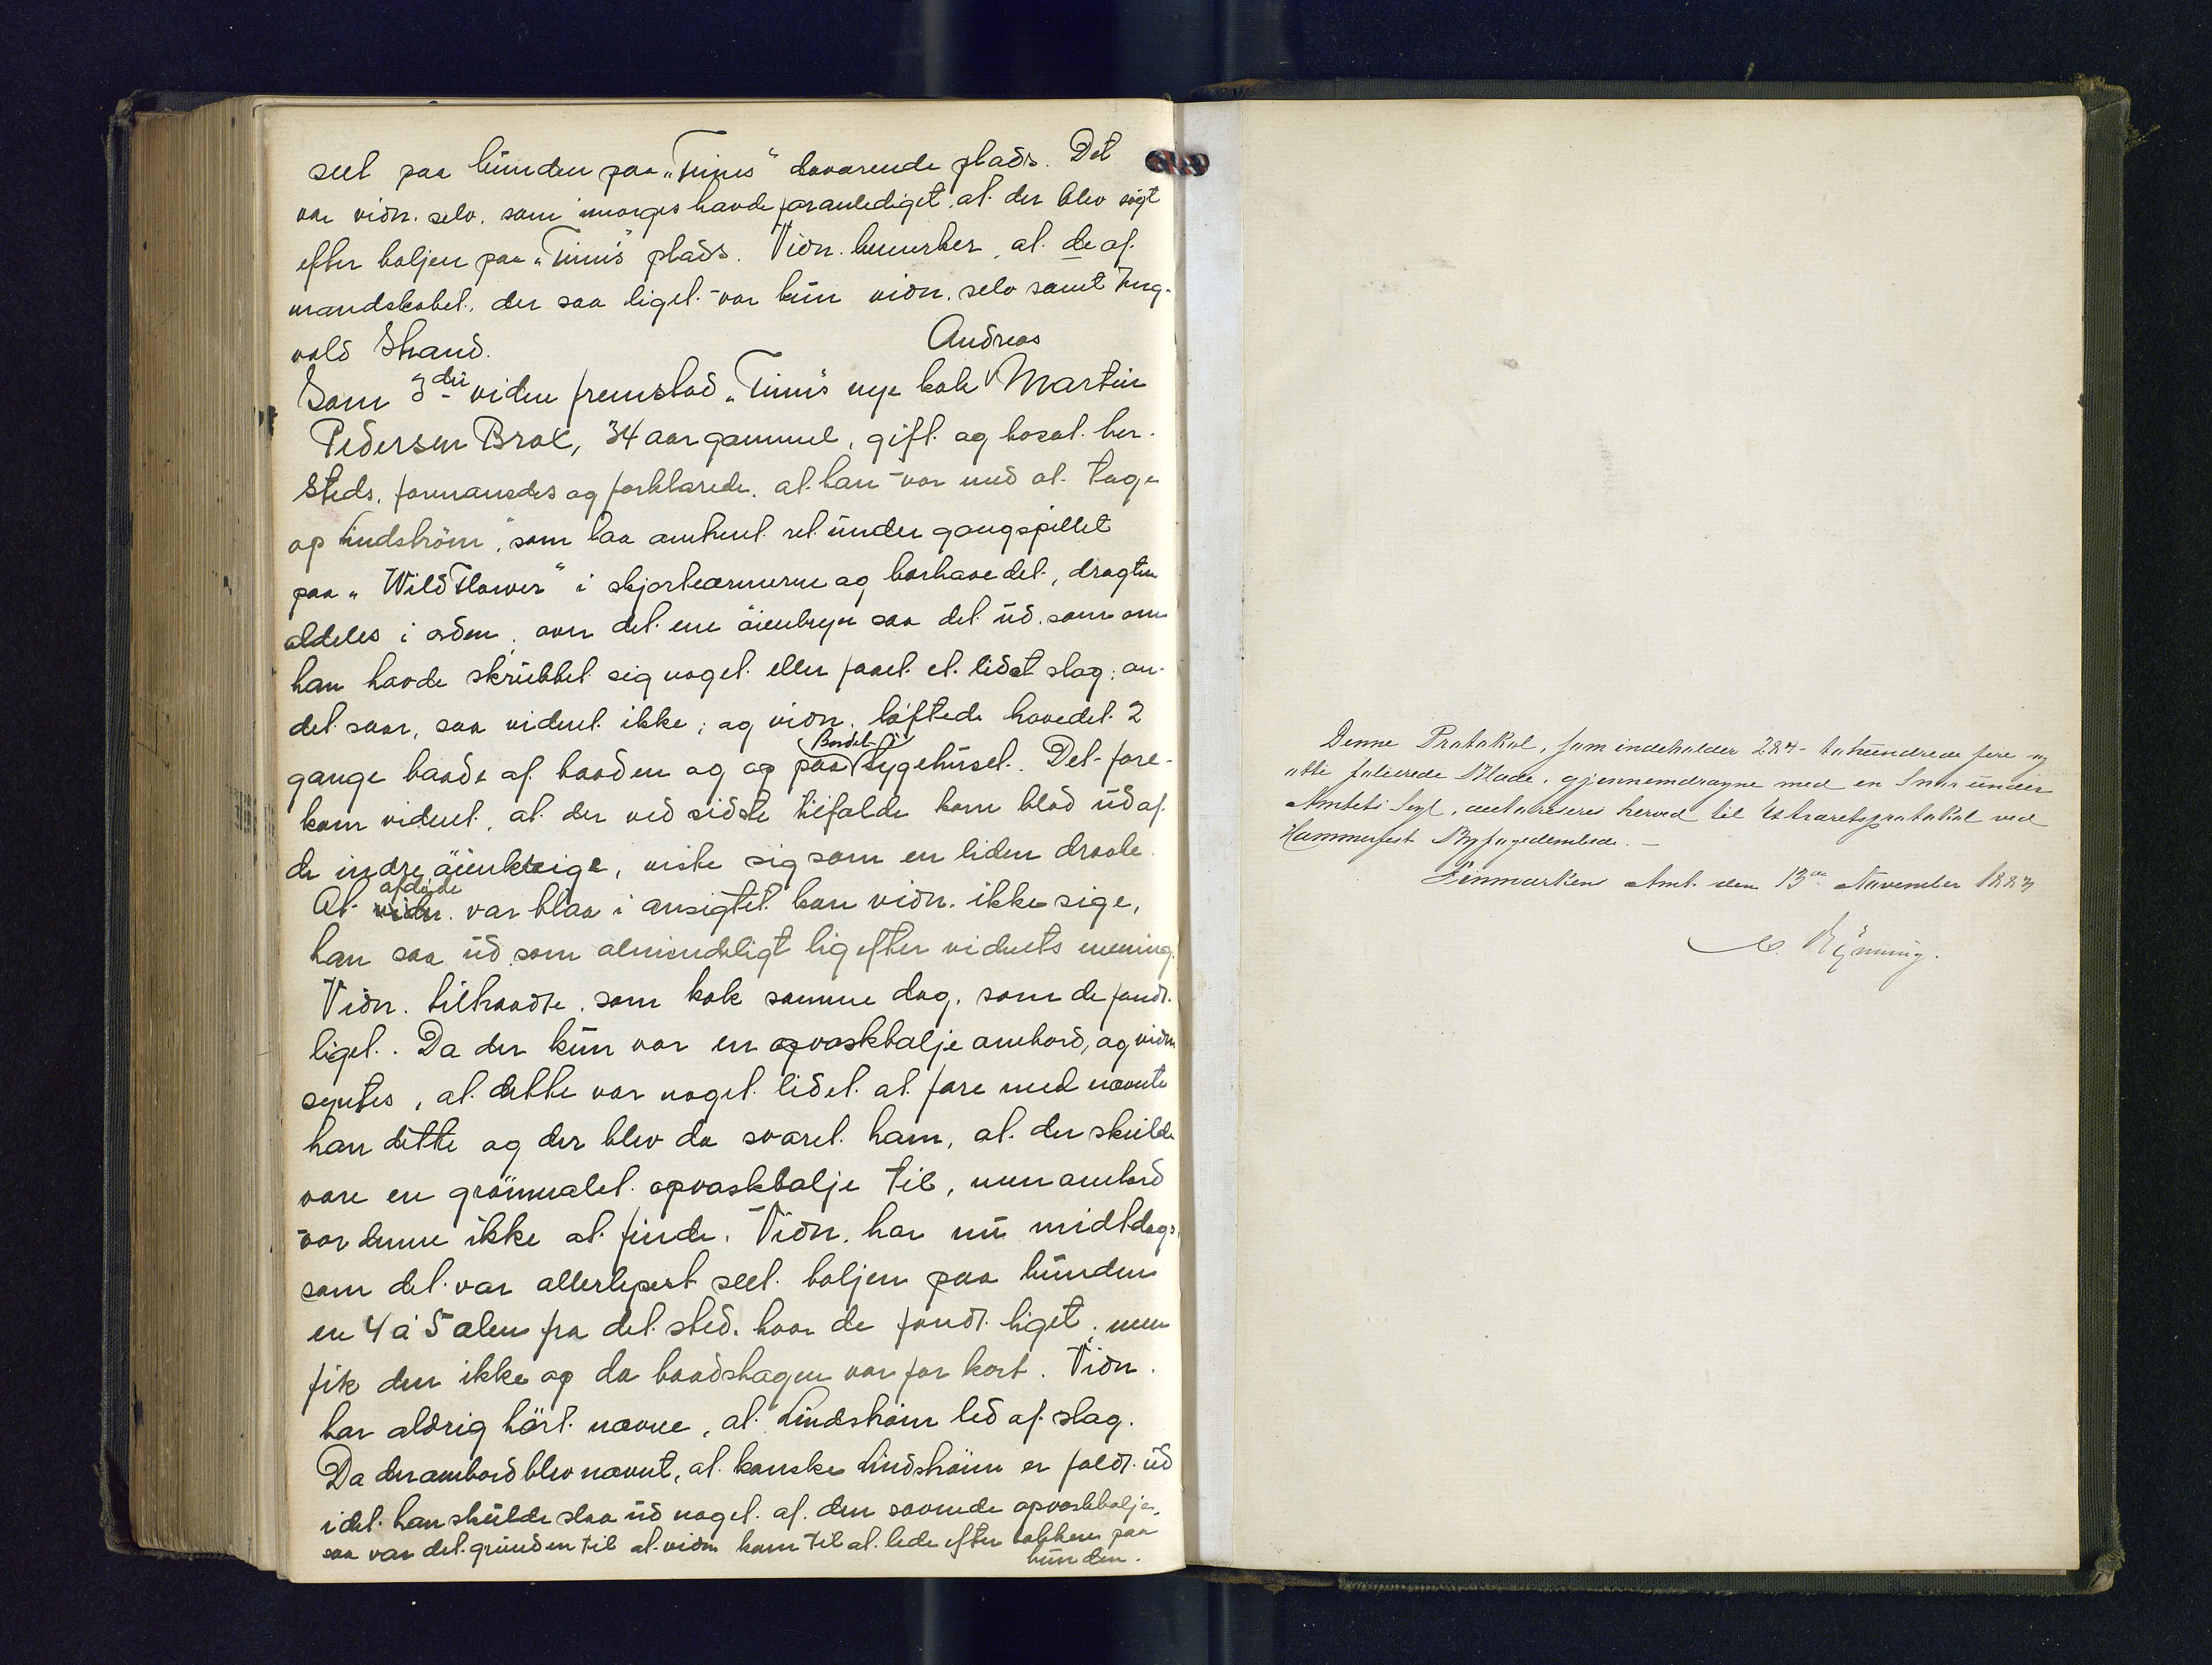 seet paa bunden paa „Tinis“ daværende plads. Det
var vidn. selv. som imorges havde foranlediget, at der blev søgt
efter baljen paa „Tinis“ plads. Vidn. bemerker, at de af
mandskabet, der saa liget var kun vidn. selv samt Ing-
vald Strand.
Som 3die vidne fremstod „Tinis“ nye kok Andreas Martin
Pedersen Brox, 34 aar gammel, gift og bosat her-
steds, formanedes og forklarede, at han var med at tage
op Lindstrøm, som laa omtrent ret under gangspillet
paa „Wild Flower“ i skjorteærmerne og barhovedet, dragten
aldeles i orden, over det ene øienbryn saa det ud, som om
han havde skrubbet sig noget eller faaet et lidet slag; an-
det saar, saa vidnet ikke; og vidn. løftede hovedet 2
gange baade af baaden og op paa Bordet i sygehuset. Det fore-
kom vidnet, at der ved sidste tilfælde kom blod ud af
de indre øienkroge, viste sig som en liden draabe.
At afdøde var blaa i ansigtet kan vidn. ikke sige,
han saa ud som almindeligt lig efter vidnets mening.
Vidn. tiltraadte, som kok samme dag, som de fandt
liget. Da der kun var en opvaskbalje ombord, og vidn
syntes, at dette var noget lidet at fare med nævnte
han dette og der blev da svaret ham, at der skulde
være en grønmalet opvaskbalje til, men ombord
var denne ikke at finde. Vidn. har nu middags,
som det var allerlavest seet baljen paa bunden
en 4 á 5 alen fra det sted, hvor de fandt liget, men
fik den ikke op da baadshagen var for kort. Vidn.
har aldrig hørt nævne, at Lindstrøm led af slag.
Da der ombord blev nævnt, at kanske Lindstrøm er faldt ud
idet han skulde slaa ud noget af den savnede opvaskbalje,
saa var det grunden til at vidn kom til at lede efter baljen paa
bunden.
Denne Protokol, som indeholder 284 - tohundrede fire og
otti folierede Blade, gjennemdragne med en Snor under
Amtets Segl, autoriseres herved til Extraretsprotokol ved
Hammerfest Byfogedembede. -
Finmarkens Amt den 13de November 1883
C. Rynning.